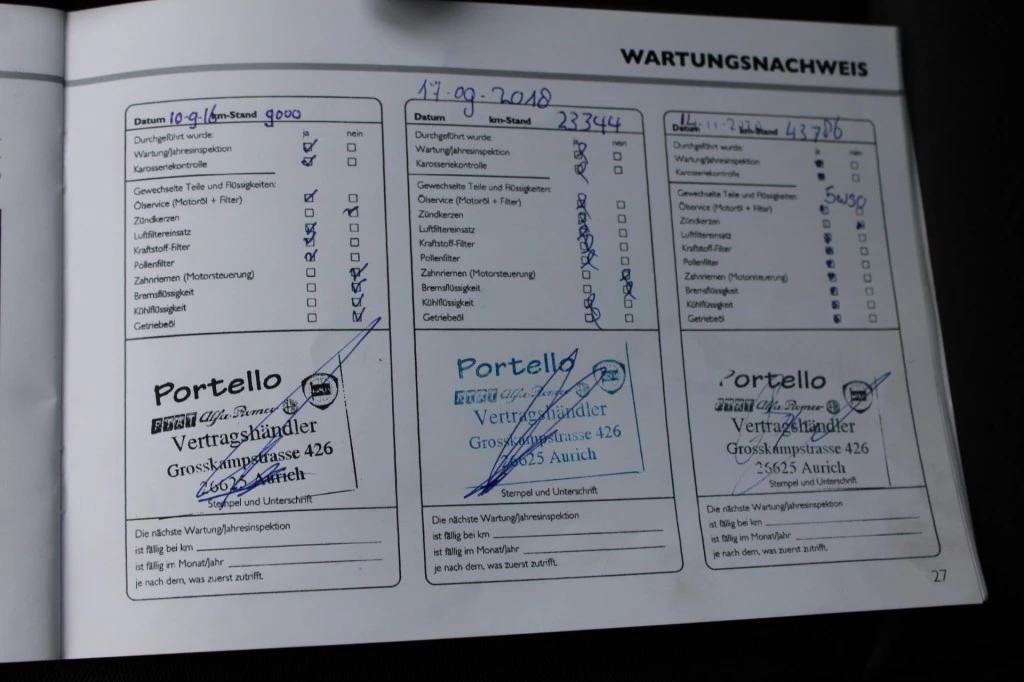 WARTUNGSNACHWEIS
Datum 10-9-16 km-Stand 9000
Durchgeführt wurde: ja nein
Wartung/Jahresinspektion
Karosseriekontrolle
Gewechselte Teile und Flüssigkeiten:
Ölservice (Motoröl + Filter)
Zündkerzen
Luftfiltereinsatz
Kraftstoff-Filter
Pollenfilter
Zahnriemen (Motorsteuerung)
Bremsflüssigkeit
Kühlflüssigkeit
Getriebeöl
Portello
FIAT Alfa Romeo
Vertragshändler
Grosskampstrasse 426
26625 Aurich
Stempel und Unterschrift
Die nächste Wartung/Jahresinspektion
ist fällig bei km
ist fällig im Monat/Jahr
je nach dem, was zuerst zutrifft.
17.09.2018
Datum km-Stand 23344
Durchgeführt wurde: ja nein
Wartung/Jahresinspektion
Karosseriekontrolle
Gewechselte Teile und Flüssigkeiten:
Ölservice (Motoröl + Filter)
Zündkerzen
Luftfiltereinsatz
Kraftstoff-Filter
Pollenfilter
Zahnriemen (Motorsteuerung)
Bremsflüssigkeit
Kühlflüssigkeit
Getriebeöl
Portello
FIAT Alfa Romeo
Vertragshändler
Grosskampstrasse 426
26625 Aurich
Stempel und Unterschrift
Die nächste Wartung/Jahresinspektion
ist fällig bei km
ist fällig im Monat/Jahr
je nach dem, was zuerst zutrifft.
Datum km-Stand 43786
Durchgeführt wurde: ja nein
Wartung/Jahresinspektion
Karosseriekontrolle
Gewechselte Teile und Flüssigkeiten:
Ölservice (Motoröl + Filter)
Zündkerzen
Luftfiltereinsatz
Kraftstoff-Filter
Pollenfilter
Zahnriemen (Motorsteuerung)
Bremsflüssigkeit
Kühlflüssigkeit
Getriebeöl
Portello
FIAT Alfa Romeo
Vertragshändler
Grosskampstrasse 426
26625 Aurich
Stempel und Unterschrift
Die nächste Wartung/Jahresinspektion
ist fällig bei km
ist fällig im Monat/Jahr
je nach dem, was zuerst zutrifft.
27